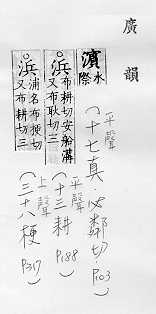 廣韻
濱 水際
平聲
(十七真.必鄰切 P103)
浜 布耕切安船溝
又布耿切三
平聲
(十三耕 P188)
浜 浦名布梗切
又布耕切三
上聲
(三十八梗 P317)